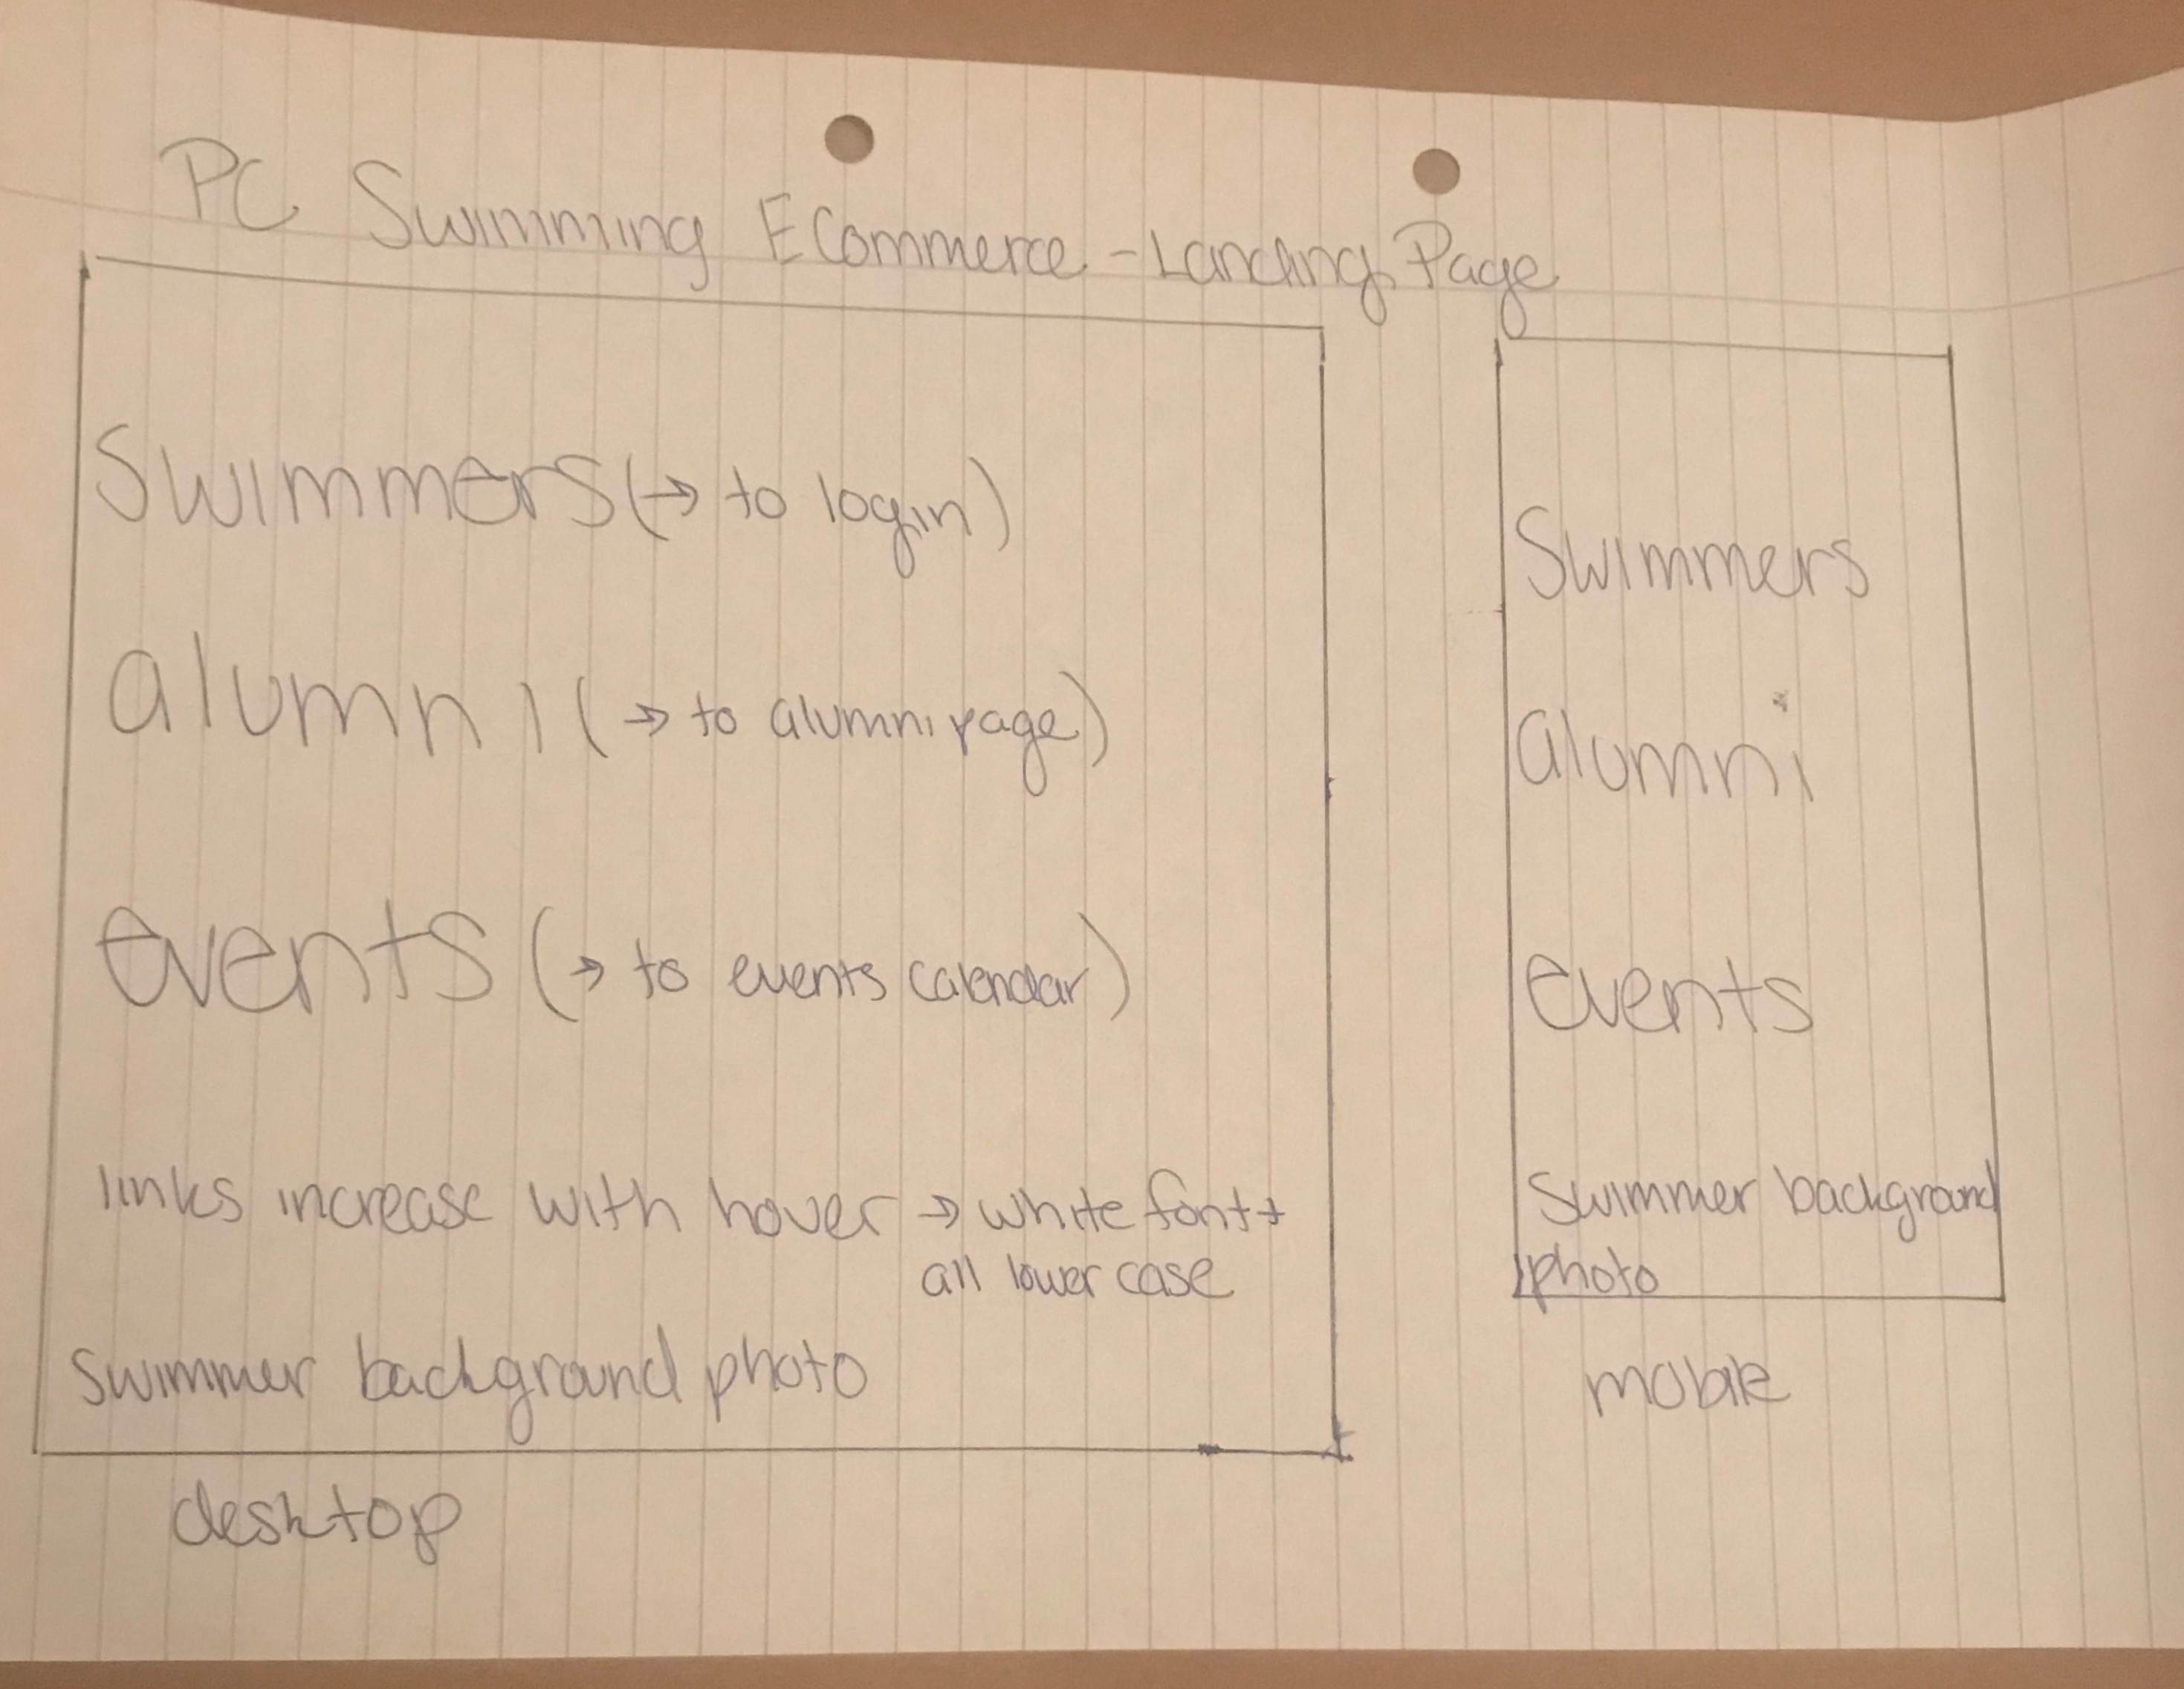 PC Swimming ECommerce - Landing Page
swimmers (→ to login)
alumni (→ to alumni page)
events (→ to events calendar)
links increase with hover → white font +
all lower case
swimmer background photo
desktop
swimmers
alumni
events
swimmer background
photo
mobile